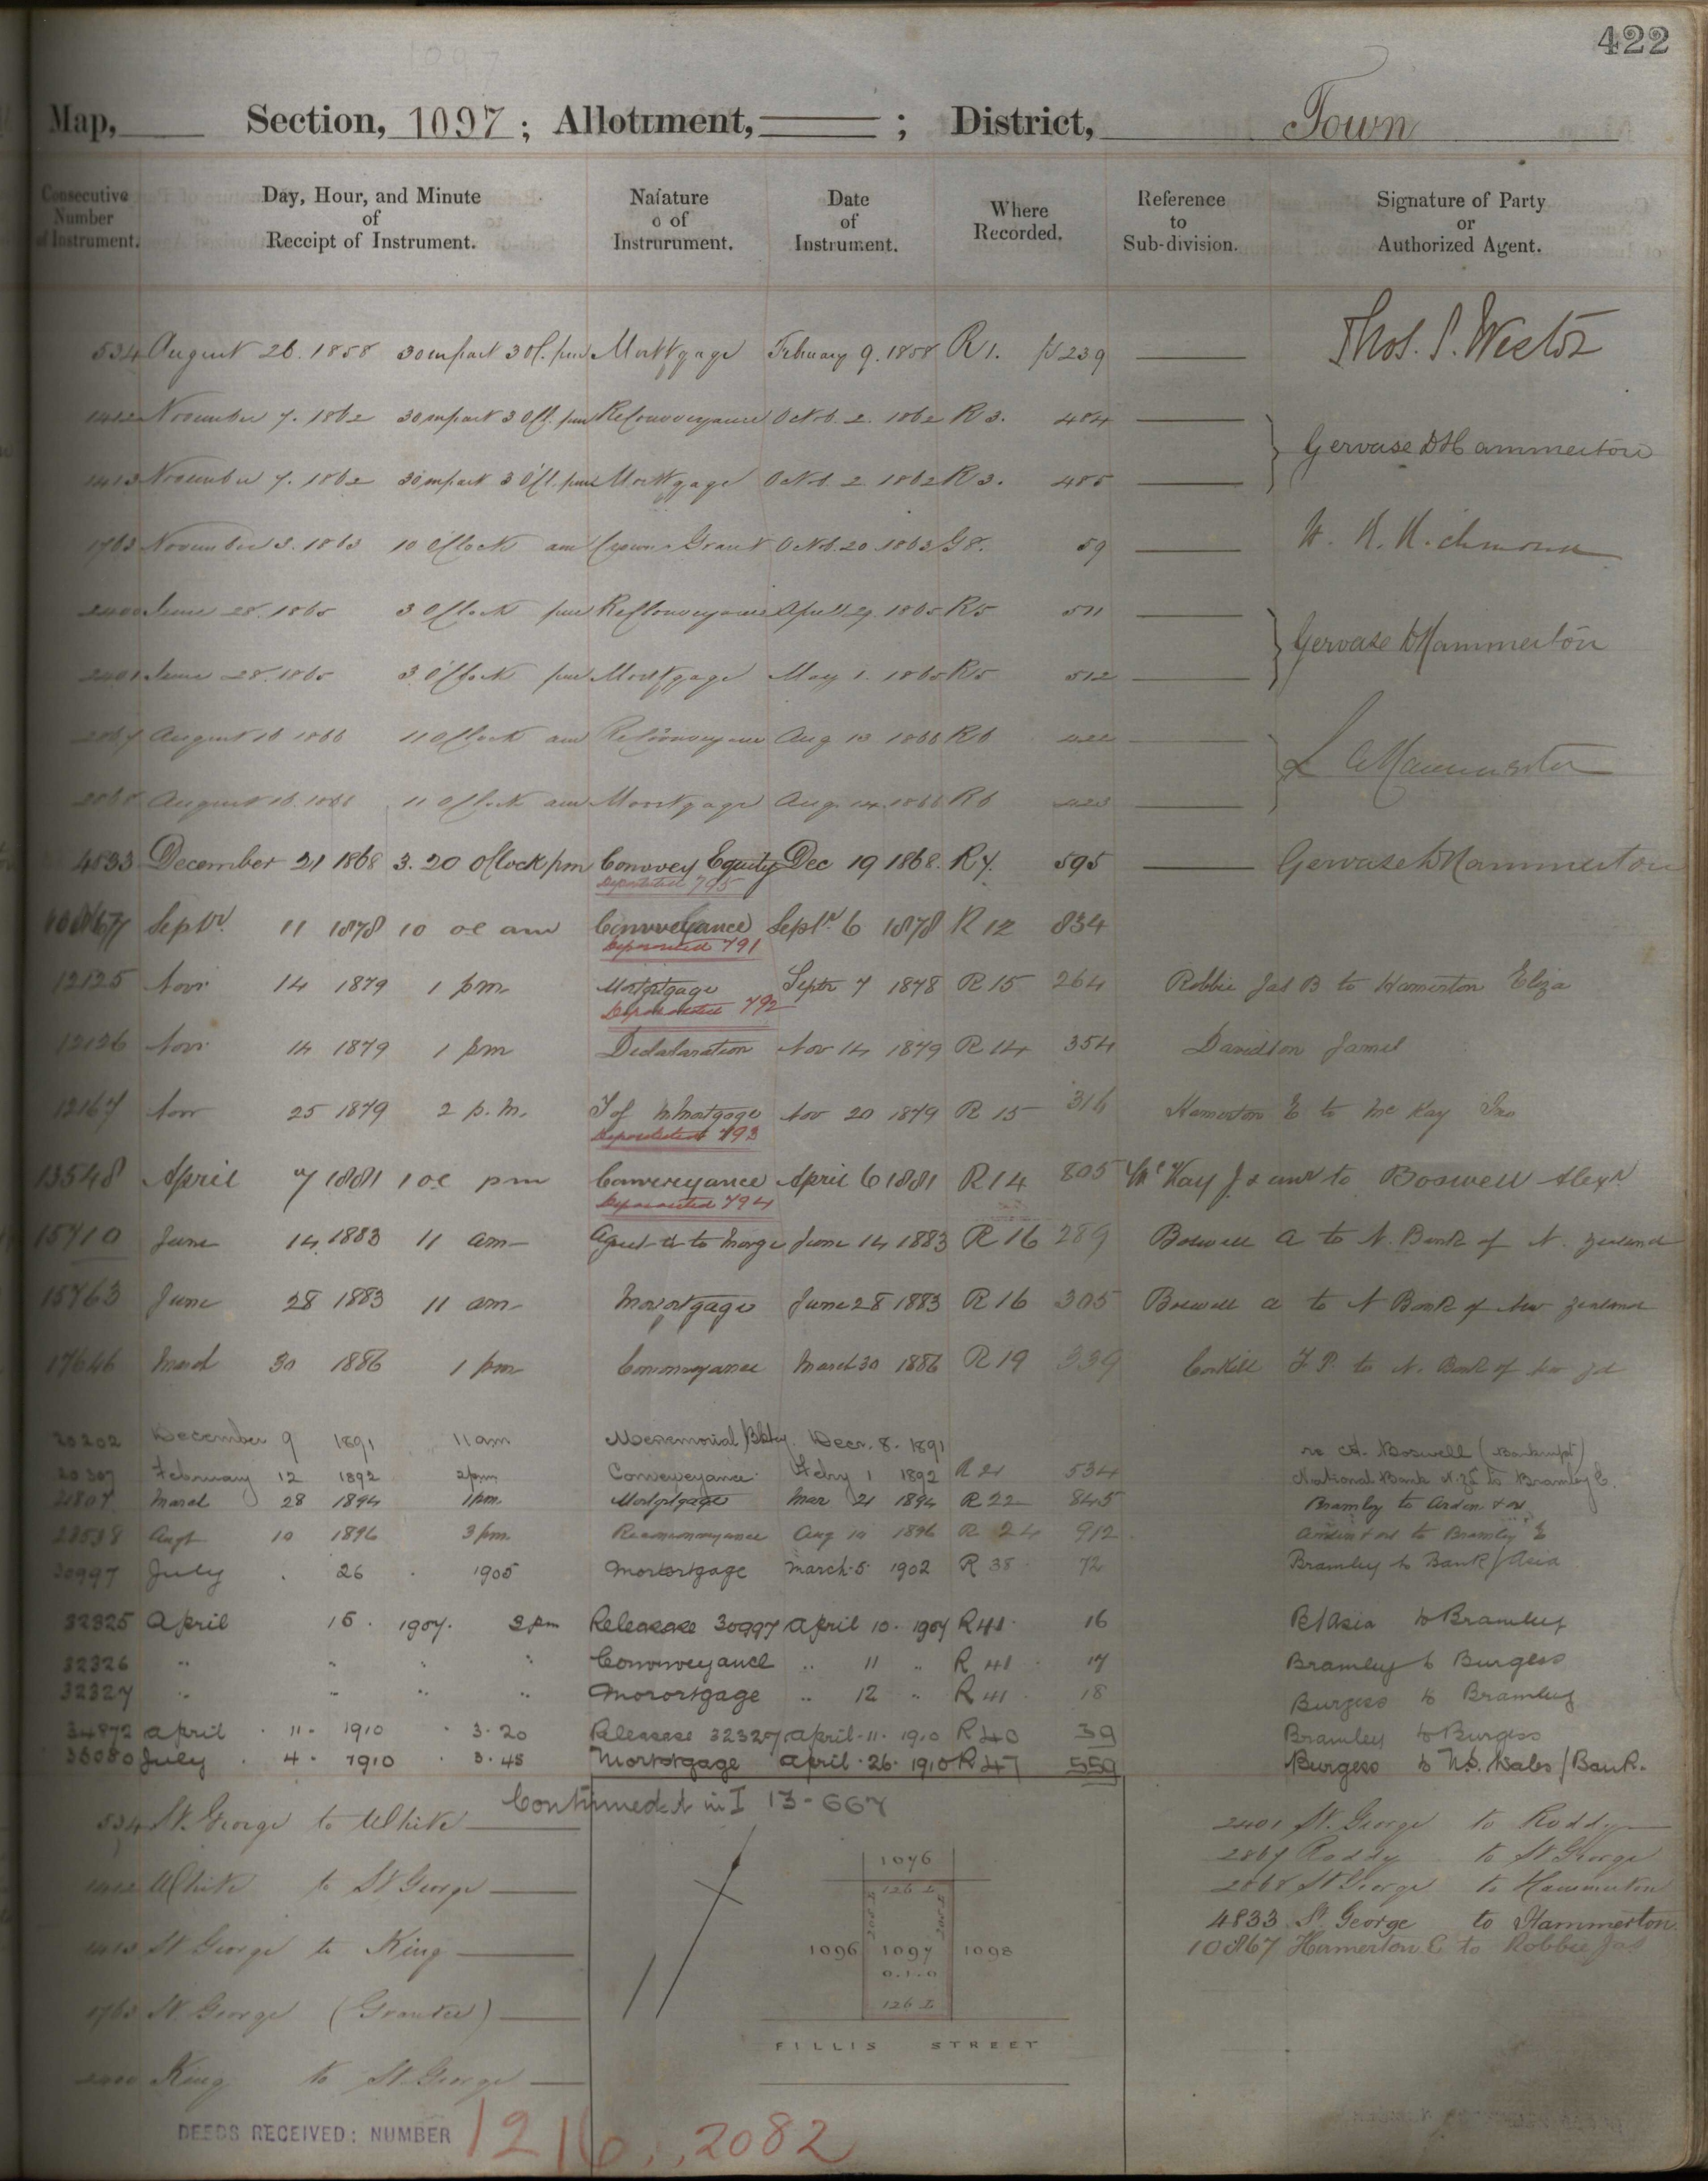 422
Map, Section, 1097 ; Allotment, ; District, Town
Consecutive Number of Instrument.
Day, Hour, and Minute of Receipt of Instrument.
Nature of Instrument.
Date of Instrument.
Where Recorded.
Reference to Sub-division.
Signature of Party or Authorized Agent.
534 August 26. 1858 30 m past 3 Oc. pm Mortgage February 9. 1858 R 1. p 239 Thos. S. Weston
1412 November 7. 1862 30 m past 3 OCl. pm ReConveyance Octob. 2. 1862 R 3. 484
Gervase D Hammerton
1413 November 7. 1862 30 m past 3 O'Cl. pm Mortgage Octob. 2 1862 R 3. 485
1763 November 3. 1863 10 O'Clock am Crown Grant Octob. 20 1863 G 8. 59
2400 June 28. 1865 3 OClock pm ReConveyance April 29 1865 R 5 511
Gervase D Hammerton
2401 June 28. 1865 3 O'Clock pm Mortgage May 1. 1865 R 5 512
2867 August 16 1866 11 OClock am ReConveyance Aug 13 1866 R 6 422
2868 August 16. 1866 11 OClock am Mortgage Aug. 14. 1866 R 6 423
4833 December 21 1868 3. 20 OClock pm Convey Equity Dec 19 1868. R 7. 595 Gervase D Hammerton
Deposited 795
10867 Septr. 11 1878 10 oc am Conveyance Septr. 6 1878 R 12 834
Deposited 791
12125 Novr. 14 1879 1 pm. Mortgage Septr 7 1878 R 15 264 Robbie Jas B to Hamerton Eliza
Deposited 792
12126 Novr. 14 1879 1 pm Declaration Nov 14 1879 R 14 354 Davidson James
12167 Novr 25 1879 2 p.m. T of Mortgage Nov 20 1879 R 15 316 Hamerton E to McKay Jno
Deposited 793
13548 April 7 1881 1 oc pm Conveyance April 6 1881 R 14 805 McKay J & anr to Boswell Alexr.
Deposited 794
15710 June 14 1883 11 am Agreet to Morge June 14 1883 R 16 289 Boswell A to N. Bank of N. Zealand
15763 June 28 1883 11 am Mortgage June 28 1883 R 16 305 Boswell A to N Bank of New Zealand
17646 March 30 1886 1 pm Conveyance March 30 1886 R 19 339 Corkill F P. to N. Bank of New Zd
20202 December 9 1891 11 am Memorial Bkty. Decr. 8. 1891 re A. Boswell (Bankrupt)
20307 February 12 1892 2 pm Conveyance Febry 1 1892 R 21 534 National Bank N.Zd to Bramley E.
March 28 1894 1 pm. Mortgage Mar 21 1894 R 22 845 Bramley to Arden & or
23538 Augt 10 1896 3 pm. Reconveyance Aug 10 1896 R 24 912 Arden & or to Bramley E
30997 July 26 1905 Mortgage March 5 1902 R 38 72 Bramley to Bank / Asia
32325 April 15. 1907. 3 pm Release 30997 April 10. 1907 R 41. 16 B/Asia to Bramley
32326 " " " " Conveyance " 11 " R 41 17 Bramley to Burgess
32327 " " " " Mortgage " 12 " R 41. 18 Burgess to Bramley
34872 April 11. 1910 3.20 Release 32327 April 11. 1910 R 40 39 Bramley to Burgess
35080 July 4. 1910 3.45 Mortgage April 26. 1910 R 47 559 Burgess to N.S. Wales / Bank.
Continued in I 13 - 667
534 St. George to White
1412 White to St George
1413 St George to King
1763 St George (Grantee)
2400 King to St George
1076
126 L
1096 1097 1098
0.1.0
126 L
FILLIS STREET
2401 St. George to Roddy
2867 Roddy to St George
2868 St George to Hammerton
4833 St George to Hammerton
10867 Hamerton E to Robbie Jas
DEEDS RECEIVED: NUMBER 1216, 2082